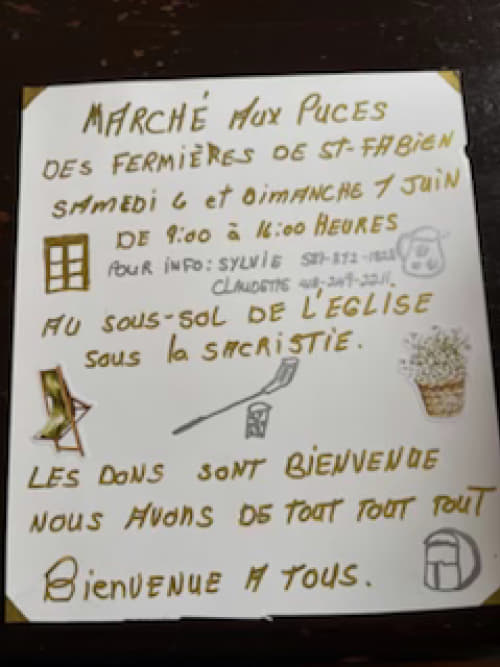 MARCHÉ AUX PUCES
DES FERMIÈRES DE ST-FABIEN
SAMEDI 6 et DIMANCHE 7 JUIN
DE 9:00 à 16:00 HEURES
POUR INFO: SYLVIE
CLAUDETTE
AU SOUS-SOL DE L'EGLISE
SOUS la SACRISTIE.
LES DONS SONT BIENVENUE
NOUS AVONS DE TOUT TOUT TOUT
BIENVENUE A TOUS.